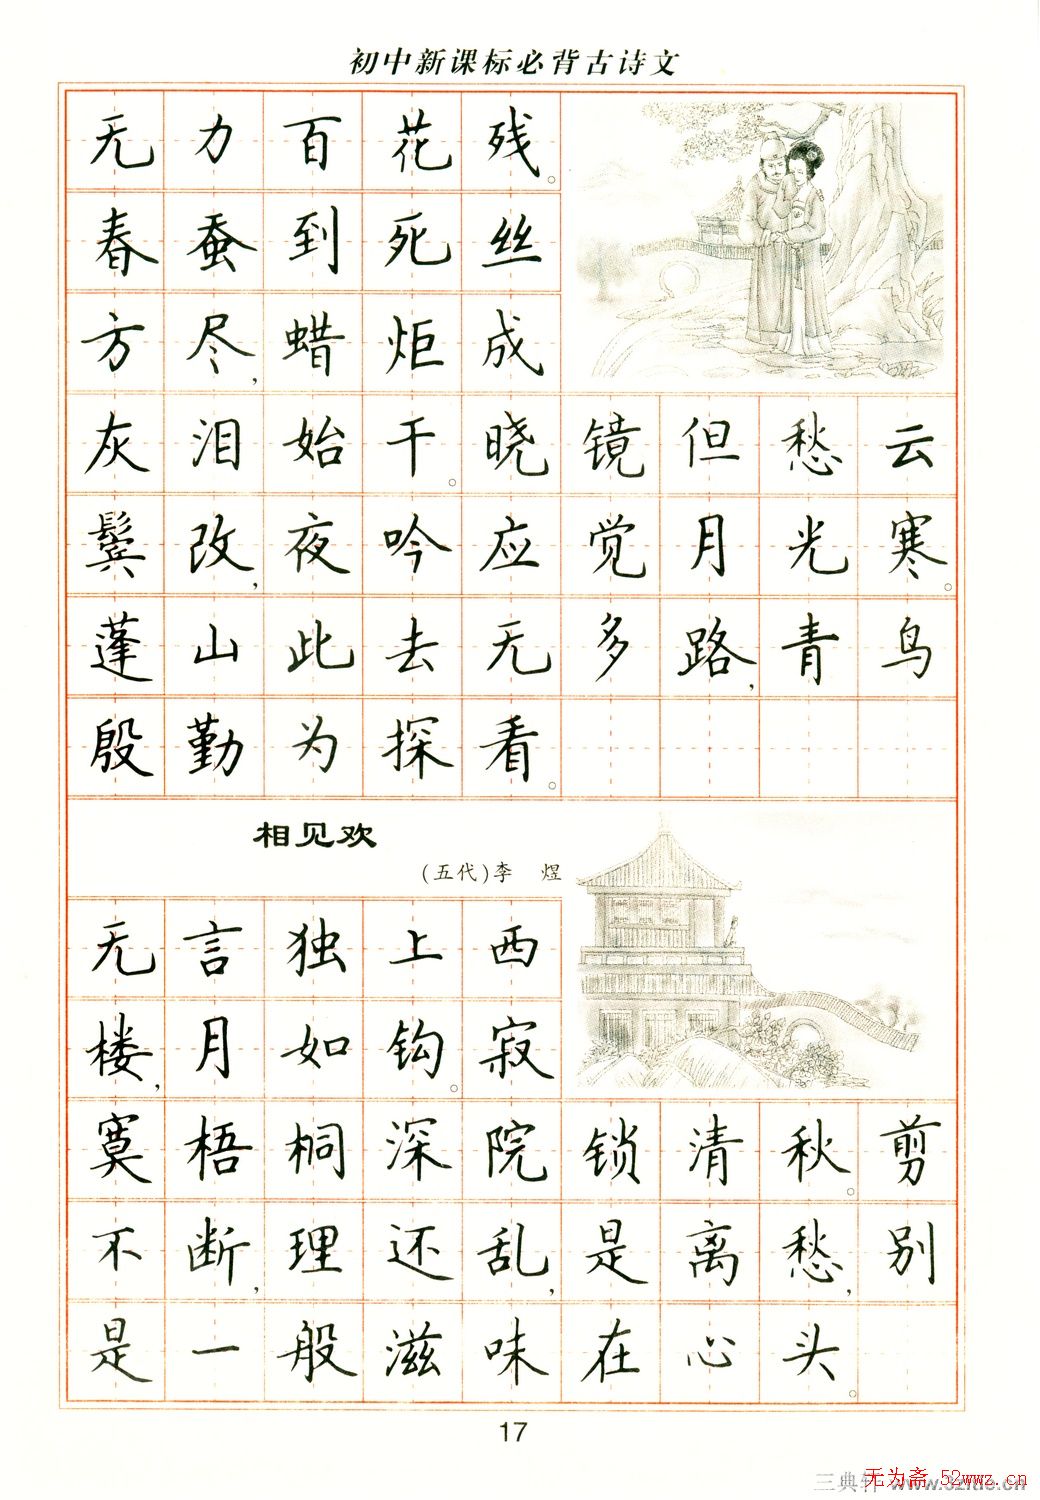 初中新课标必背古诗文
无力百花残。
春蚕到死丝
方尽,蜡炬成
灰泪始干。晓镜但愁云
鬓改,夜吟应觉月光寒。
蓬山此去无多路,青鸟
殷勤为探看。
相见欢
(五代)李 煜
无言独上西
楼,月如钩。寂
寞梧桐深院锁清秋。剪
不断,理还乱,是离愁,别
是一般滋味在心头。
17
无为斋 52wwz.cn